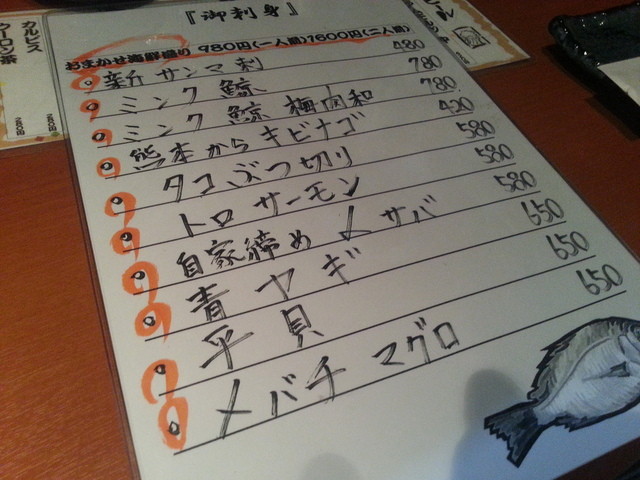 『御刺身』
おまかせ海鮮盛り 980円(一人前)1600円(二人前)
新サンマ刺 480
ミンク鯨 780
ミンク鯨梅肉和 780
熊本からキビナゴ 420
タコぶつ切り 580
トロサーモン 580
自家締め〆サバ 580
青ヤギ 650
平貝 650
メバチマグロ 650
カルピス
ウーロン茶